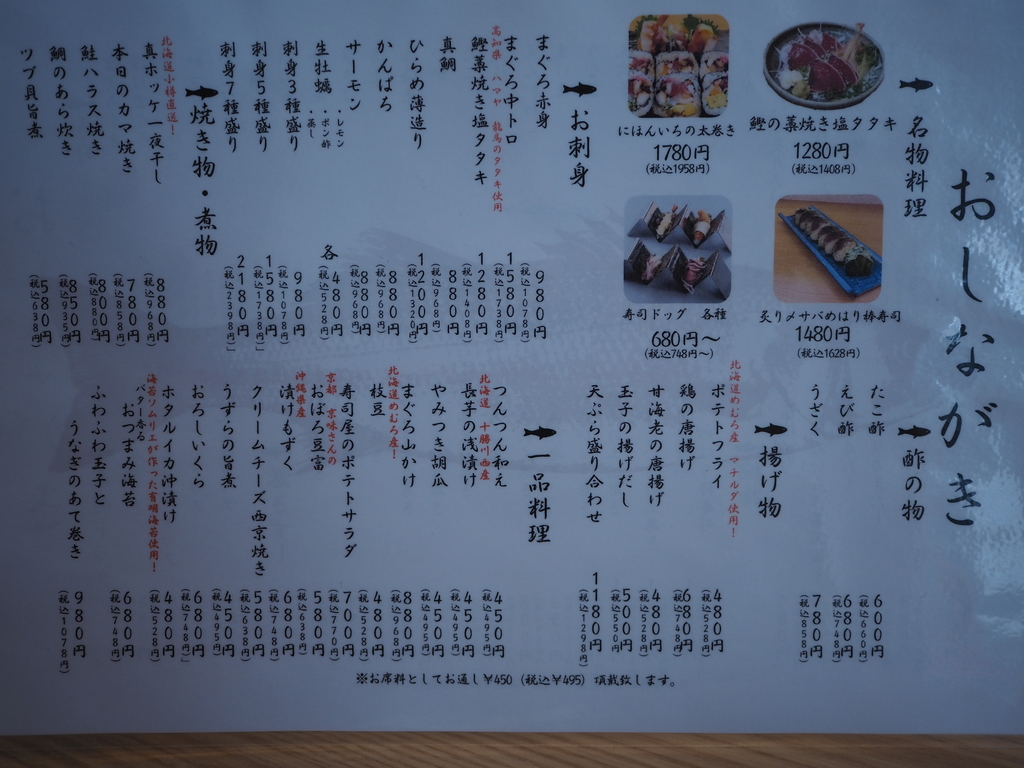 おしながき
名物料理
鰹の藁焼き塩タタキ
1280円
(税込1408円)
にほんいろの太巻き
1780円
(税込1958円)
炙りメサバめはり棒寿司
1480円
(税込1628円)
寿司ドッグ 各種
680円〜
(税込748円〜)
お刺身
まぐろ赤身 980円
(税込1078円)
まぐろ中トロ 1580円
(税込1738円)
高知県 ハマヤ 龍馬のタタキ使用
鰹藁焼き塩タタキ 1280円
(税込1408円)
真鯛 880円
(税込968円)
ひらめ薄造り 1200円
(税込1320円)
かんぱち 880円
(税込968円)
サーモン 880円
(税込968円)
生牡蠣 ・レモン ・ポン酢 ・蒸し 各480円
(税込528円)
刺身3種盛り 980円
(税込1078円)
刺身5種盛り 1580円
(税込1738円)
刺身7種盛り 2180円
(税込2398円)
焼き物・煮物
北海道小樽直送!
真ホッケ一夜干し 880円
(税込968円)
本日のカマ焼き 780円
(税込858円)
鮭ハラス焼き 800円
(税込880円)
鯛のあら炊き 850円
(税込935円)
ツブ貝旨煮 580円
(税込638円)
酢の物
たこ酢 600円
(税込660円)
えび酢 680円
(税込748円)
うざく 780円
(税込858円)
揚げ物
北海道めむろ産 マチルダ使用!
ポテトフライ 480円
(税込528円)
鶏の唐揚げ 680円
(税込748円)
甘海老の唐揚げ 480円
(税込528円)
玉子の揚げだし 500円
(税込550円)
天ぷら盛り合わせ 1180円
(税込1298円)
一品料理
つんつん和え 450円
(税込495円)
北海道 十勝川西産
長芋の浅漬け 450円
(税込495円)
やみつき胡瓜 450円
(税込495円)
まぐろ山かけ 880円
(税込968円)
北海道めむろ産!
枝豆 480円
(税込528円)
寿司屋のポテトサラダ 700円
(税込770円)
京都 京味さんの
おぼろ豆富 580円
(税込638円)
沖縄県産
漬けもずく 680円
(税込748円)
クリームチーズ西京焼き 580円
(税込638円)
うずらの旨煮 450円
(税込495円)
おろしいくら 680円
(税込748円)
ホタルイカ沖漬け 480円
(税込528円)
海苔ソムリエが作った有明海苔使用!
バター香る
おつまみ海苔 680円
(税込748円)
ふわふわ玉子と
うなぎのあて巻き 980円
(税込1078円)
※お席料としてお通し¥450(税込¥495)頂戴致します。